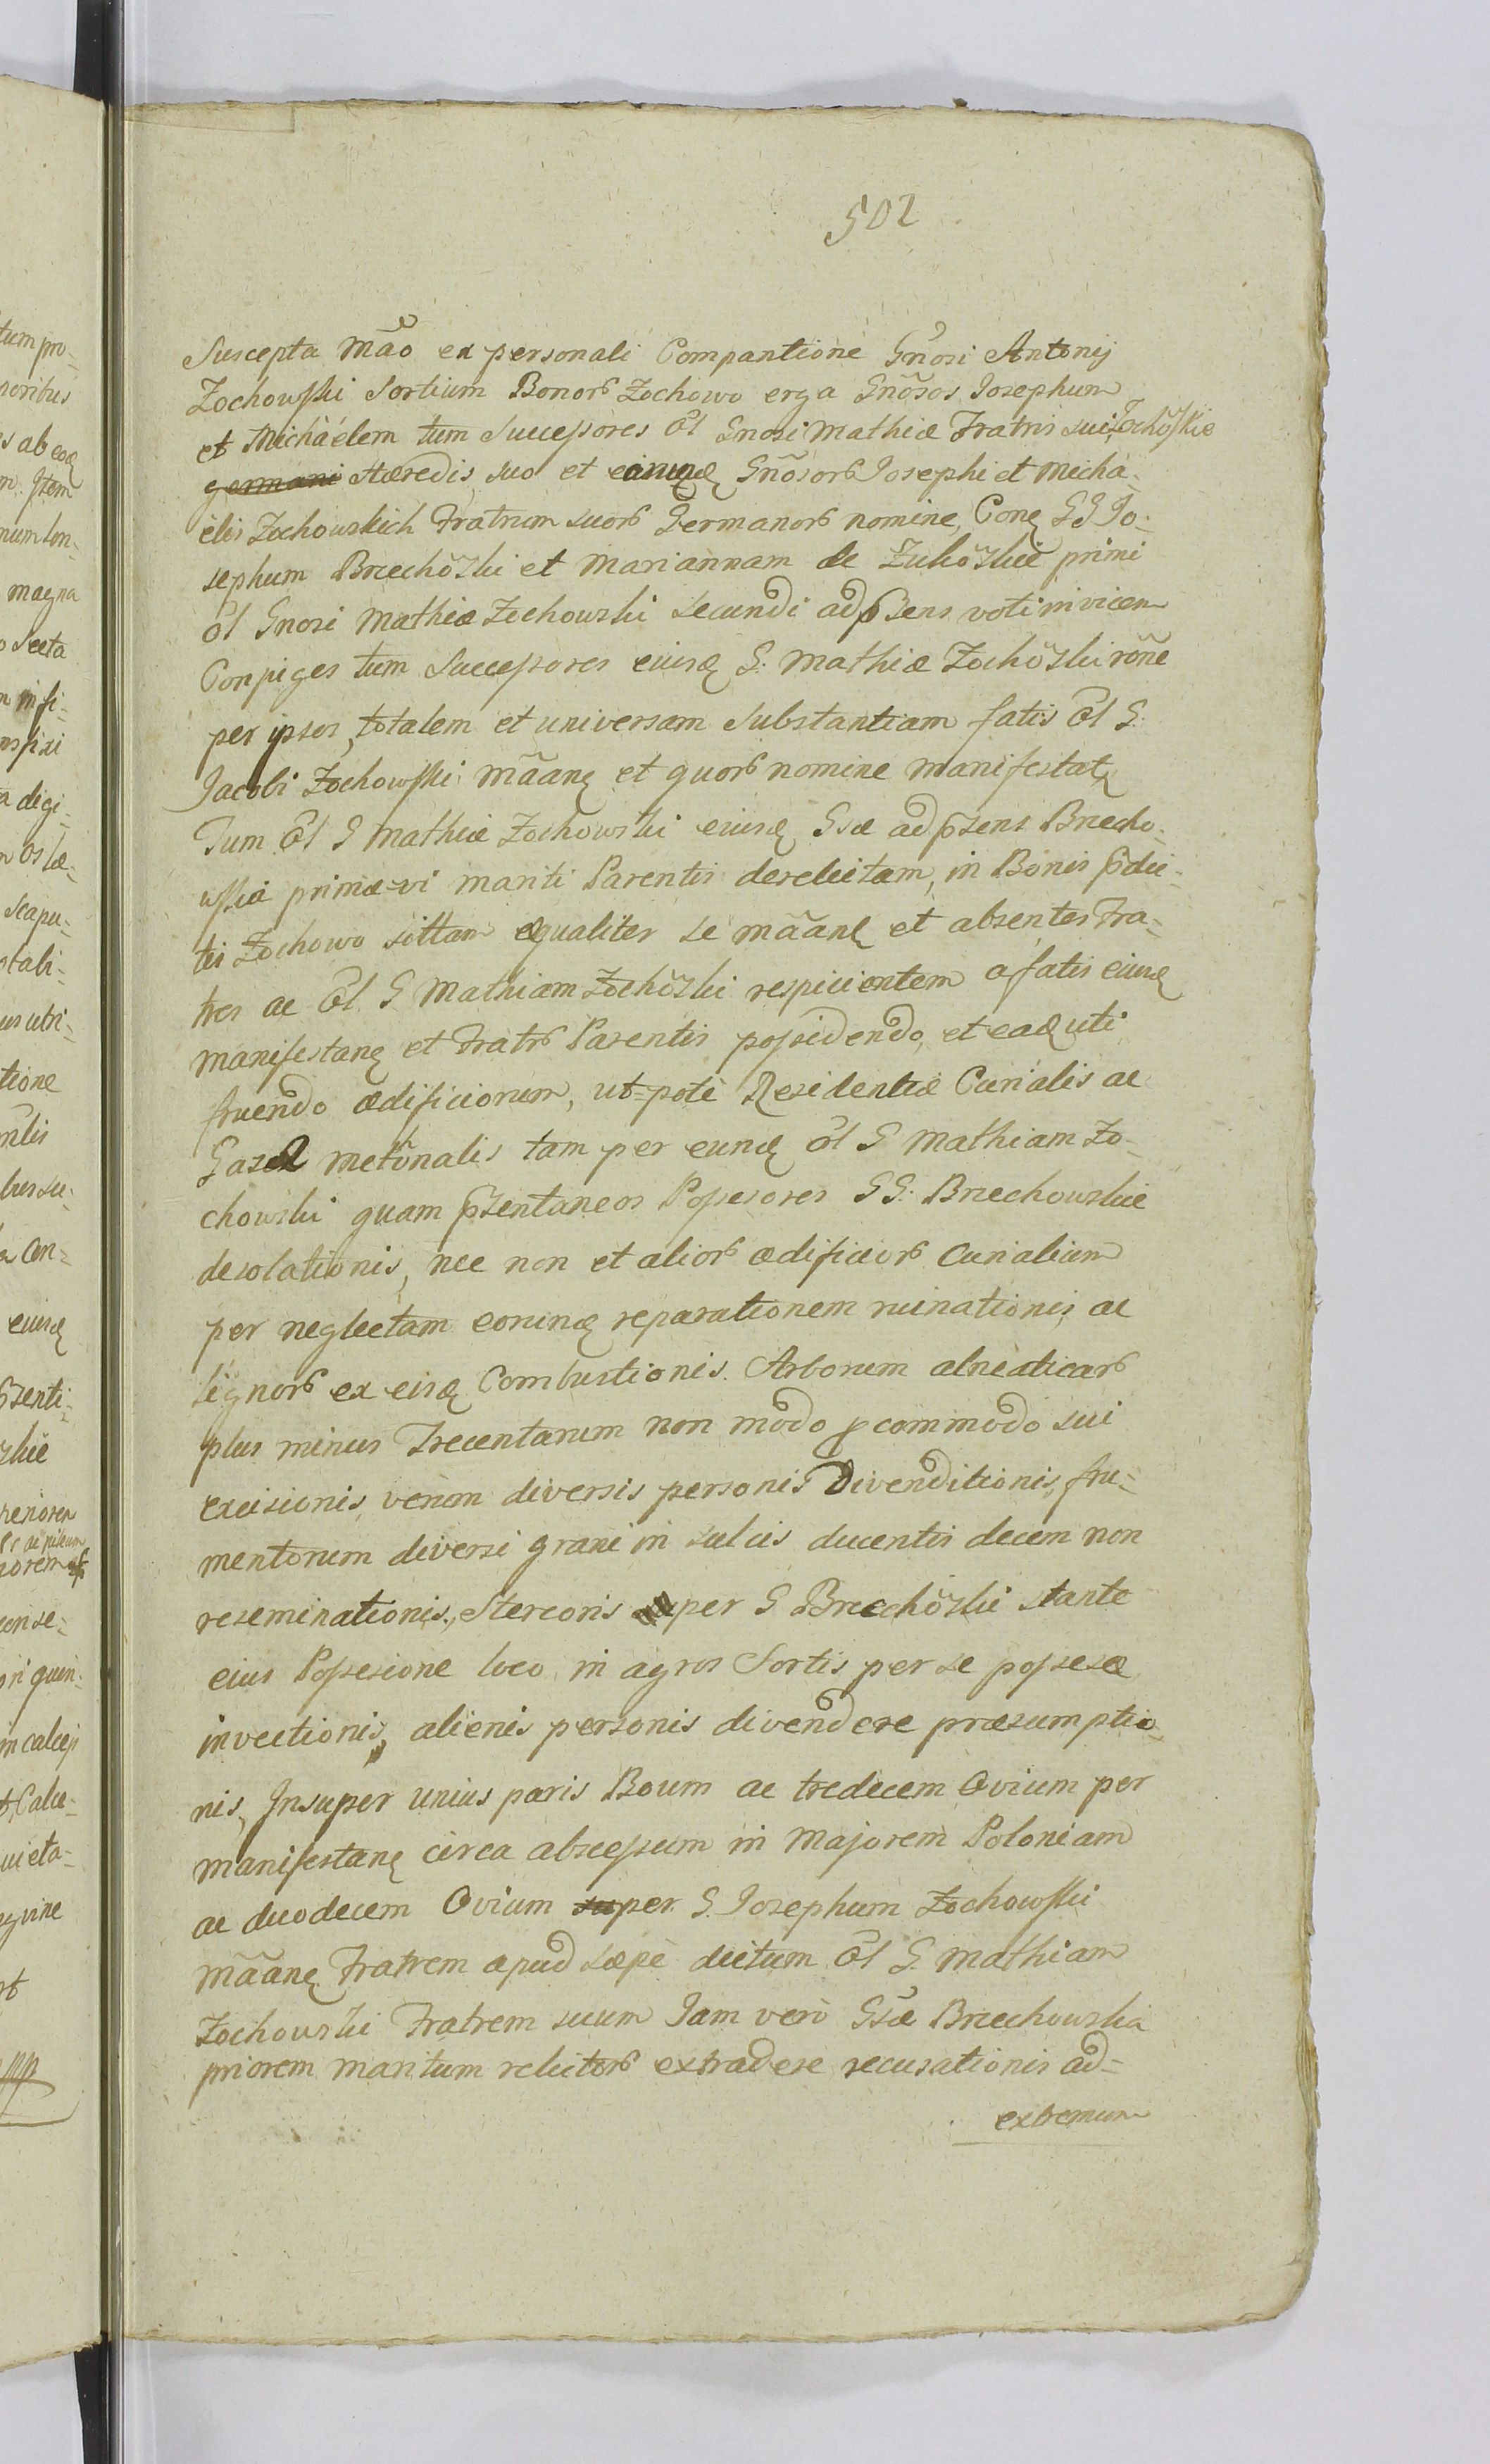 502
Suscepta Mão ex personali Compantione Gñosi Antonij
Zochowski Sortium Bonorb Zochowo erga Gñosos Josephum
et Michäélem tum Successores Ol Gnosi Mathiæ Fratris sui Zochõskie
germani Hæredis, suo et eorumdę Gñosorb Josephi et Micha-
élis Zochowskich Fratrum suorb Germanorb nomine, Conę GG Jo-
sephum Brzechõski et Mariannam de Zukõskie primi
Ol Gnosi Mathiæ Zochowski secundi ad pzens voti invicem
Conjuges tum Successores eiusdę G: Mathiæ Zochõski rõne
per ipsos, totalem et universam Substantiam fatis Ol G.
Jacobi Zochowski mãanę et quorb nomine manifestatę
Tum Ol G Mathiæ Zochowski eiusdę Gsæ ad pzens Brzecho-
wska primæ-vi mariti Parentis derelictam, in Bonis pdic-
tis Zochowo sittam æqualiter se mãanę et absentes Fra-
tres ac Ol. G Mathiam Zochõski respicientem a fatis eiusdę
manifestanę et Fratrb Parentis possidendo, et eadę uti
fruendo ædificiorum, ut=pote Residentiæ Curialis ac
Gazæ metõnalis tam per eundę Ol G Mathiam Zo-
chowski quam pzentaneos Possesores GG: Brzechowskie
desolationis, nec non et aliorb ædificiorb Curialium
per neglectam eorundę reparationem ruinationis, ac
lignorb ex eisdę Combustionis. Arborum alneaticarb
plus minus Trecentarum non modo p commodo sui
excisionis, verum diversis personis Divenditionis, fru-
mentorum diversi grani in sulcis ducentis decem non
reseminationis, Stercoris per G Brzechõski stante
eius Possesione loco in agros Sortis per se possesæ
invectionis, alienis personis divendere præsumptio-
nis, Insuper unius paris Boum ac tredecem Ovium per
manifestanę circa abscessum in Majorem Poloniam
ac duodecem Ovium super G. Josephum Zochowski
mãanę Fratrem apud sæpè dictum Ol G. Mathiam
Zochowski Fratrem suum Jam verò Gsæ Brzechowska
priorem maritum relictorb extradere recusationis ad-
extremum